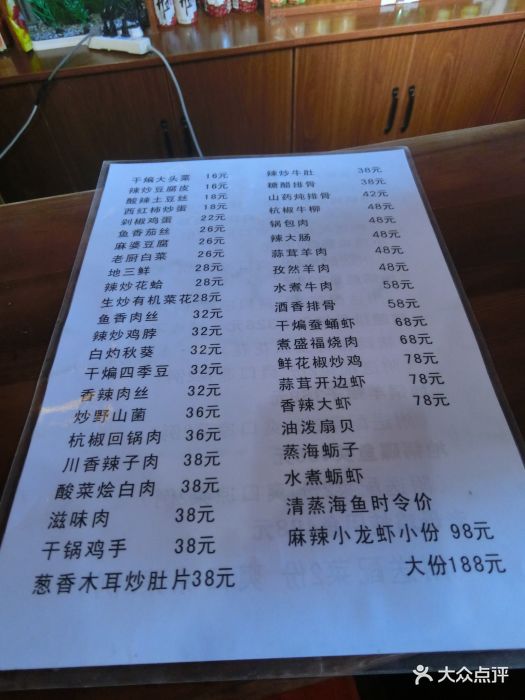 干煸大头菜 16元
辣炒豆腐皮 16元
酸辣土豆丝 18元
西红柿炒蛋 18元
剁椒鸡蛋 22元
鱼香茄丝 26元
麻婆豆腐 26元
老厨白菜 26元
地三鲜 28元
辣炒花蛤 28元
生炒有机菜花28元
鱼香肉丝 32元
辣炒鸡脖 32元
白灼秋葵 32元
干煸四季豆 32元
香辣肉丝 32元
炒野山菌 36元
杭椒回锅肉 36元
川香辣子肉 38元
酸菜烩白肉 38元
滋味肉 38元
干锅鸡手 38元
葱香木耳炒肚片38元
辣炒牛肚 38元
糖醋排骨 38元
山药炖排骨 42元
杭椒牛柳 48元
锅包肉 48元
辣大肠 48元
蒜茸羊肉 48元
孜然羊肉 48元
水煮牛肉 58元
酒香排骨 58元
干煸蚕蛹虾 68元
煮盛福烧肉 68元
鲜花椒炒鸡 78元
蒜茸开边虾 78元
香辣大虾 78元
油泼扇贝
蒸海蛎子
水煮蛎虾
清蒸海鱼时令价
麻辣小龙虾小份 98元
大份188元
大众点评